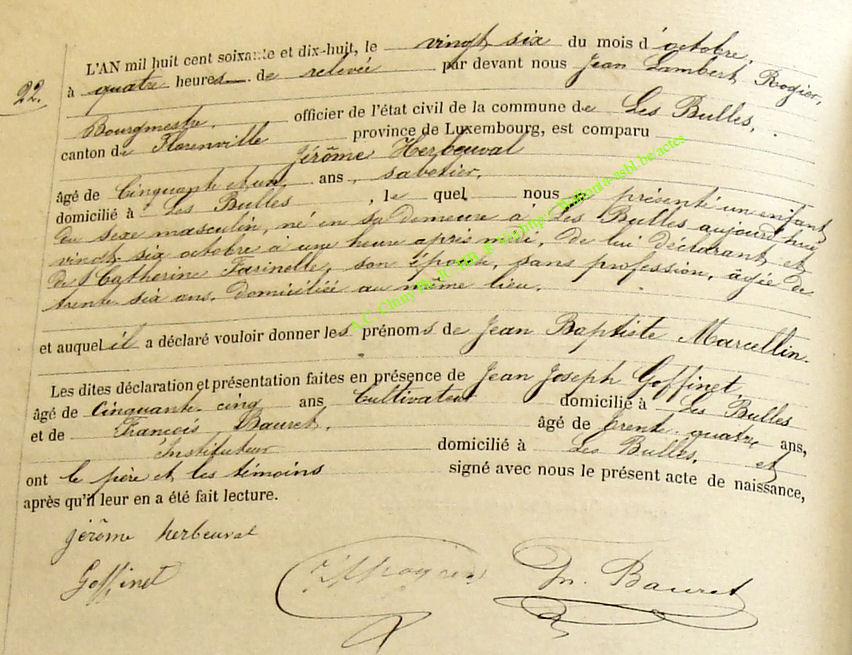 22.
L'AN mil huit cent soixante et dix-huit, le vingt six du mois d'octobre,
à quatre heures de relevée par devant nous Jean Lambert Rogier,
Bourgmestre, officier de l'état civil de la commune de Les Bulles,
canton de Florenville province de Luxembourg, est comparu
Jérôme Herbeuval
âgé de Cinquante et un ans, sabotier,
domicilié à Les Bulles, le quel nous a présenté un enfant
du sexe masculin, né en sa demeure à Les Bulles aujourd'hui
vingt six octobre à une heure après midi, de lui déclarant et
de Catherine Fasinelle, son épouse, sans profession, âgée de
trente six ans, domiciliée au même lieu.
et auquel il a déclaré vouloir donner les prénoms de Jean Baptiste Marcellin.
Les dites déclaration et présentation faites en présence de Jean Joseph Goffinet,
âgé de cinquante cinq ans Cultivateur domicilié à Les Bulles
et de François Bauret, âgé de trente quatre ans,
Instituteur domicilié à Les Bulles, et
ont le père et les témoins signé avec nous le présent acte de naissance,
après qu'il leur en a été fait lecture.
jérôme herbeuval
Goffinet Rogier Fr. Bauret